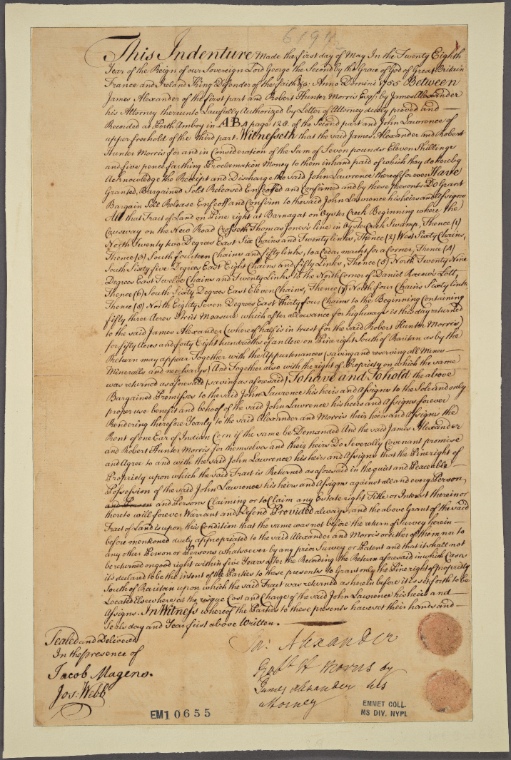 6197
This Indenture Made the first day of May In the Twenty Eighth
Year of the Reign of our Sovereign Lord George the Second by the Grace of God of Great Britain
France and Ireland King Defender of the faith &c: Anno Domini 1755 Between
James Alexander of the first part and Robert Hunter Morris Esqr. by James Alexander
his Attorney thereunto Lawfully Authorized by Letter of Attorney duly proved and
Recorded at Perth Amboy in AB2 a page 128 of the Second part and John Lawrence of
upper freehold of the Third part. Witnesseth that the said James Alexander and Robert
Hunter Morris for and in Consideration of the Sum of Seven pounds Eleven Shillings
and five pence farthing Proclamation Money to them in hand paid of which they do hereby
Acknowledge the Receipt and Discharge the said John Lawrence thereof for ever Have
Granted, Bargained Sold Released Enfeoffed and Confirmed and by these presents Do Grant
Bargain Sell Release Enfeoff and Confirm to the said John Lawrence his heirs and Assigns
All that Tract of Land on Pine right at Barnagat on Oyster Creek Beginning where the
Causeway on the New Road Crosseth Thomas Jones's line in Oyster Creek Swamp, Thence (1)
North Twenty two Degrees East Six Chains and Twenty links, Thence (2) West Sixty Chains,
Thence (3) South fourteen Chains and fifty links, to a Cedar marked for a Corner, Thence (4)
South Sixty five Degrees East Eight Chains and fifty Links, Thence (5) North Twenty Nine
Degrees East Twelve Chains and Twenty Links to the North Corner of Daniel Lott,
Thence (6) South Sixty Degrees East Eleven Chains, Thence (7) North four Chains Sixty Links
Thence (8) North Eighty Seven Degrees East Thirty four Chains to the Beginning Containing
fifty three Acres Strict Measure which after allowance for highways is this day returned
to the said James Alexander whereof half is in trust for the said Robert Hunter Morris)
for fifty Acres and forty Eight hundredths of an Acre on Pine right South of Raritan as by the
Return may appear Together with the Appurtenances saving and reserving all Mines
Minerals and royalties) And Together also with the right of Propriety on which the same
was returned as aforesaid serving as aforesaid) To have and To hold the above
Bargained Premisses to the said John Lawrence his heirs and Assigns to the Sole and only
proper use benefit and behoof of the said John Lawrence his heirs and Assigns forever
Rendering therefore Yearly to the said Alexander and Morris their heirs and Assigns the
Rent of one Ear of Indian Corn if the same be Demanded And the said James Alexander
and Robert Hunter Morris for themselves and their heirs Do Severally Covenant promise
and Agree to and with the said John Lawrence his heirs and Assigns that the Pine right of
Propriety upon which the said Tract is Returned as aforesaid in the quiet and Peaceable
Possession of the said John Lawrence his heirs and Assigns against all and every Person,
and Persons Claiming or to Claim any Estate right Title or Interest therein or
thereto will forever Warrant and Defend Provided always, and the above Grant of the said
Tract of Land is upon this Condition that the same was not before the return of Survey herein
before mentioned duly appropriated to the said Alexander and Morris or either of them nor to
any other Person or Persons whatsoever by any prior Survey or Patent and that it shall not
be returned on good right within five Years after the Recording the Return aforesaid in which Case
its declared to be the intent of the Parties to these presents to Grant only the Pine right of propriety
South of Raritan upon which the said Tract was returned as herein before it is set forth to be
Located Elsewhere at the risque Cost and Charge of the said John Lawrence his heirs and
Assigns. In Witness whereof the Parties to these presents have set their hands and
Seals day and Year first above Written.
Sealed and Delivered
In the presence of
Jacob Magens.
Jos. Webb
Ja: Alexander
Robt. H Morris by
James Alexander his
attorney
EM10655
EMMET COLL.
MS DIV. NYPL